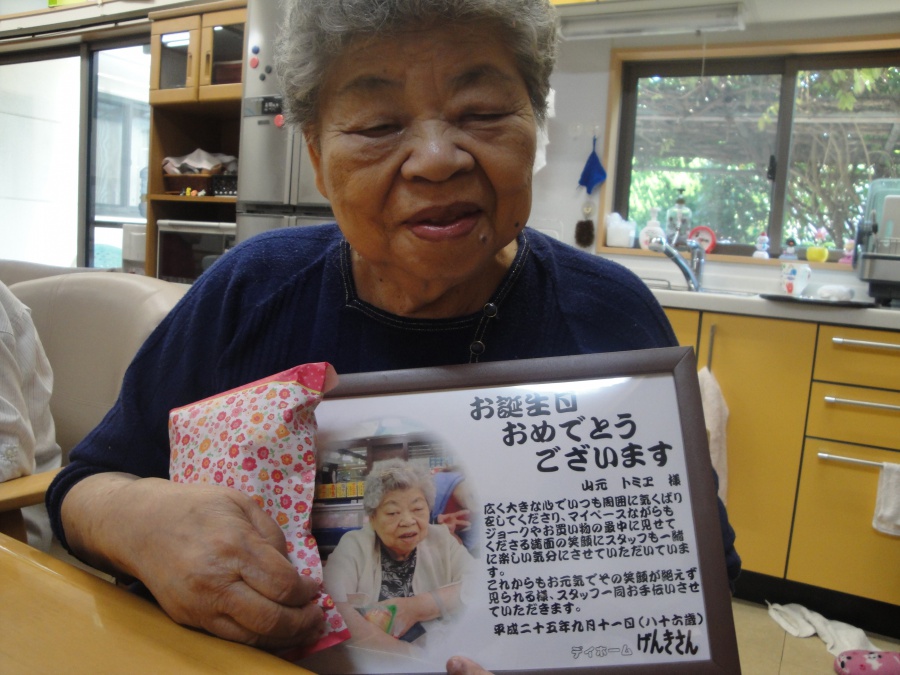 お誕生日
おめでとう
ございます
山元 トミヱ 様
広く大きな心でいつも周囲に気くばり
をしてくださり、マイペースながらも
ジョークやお買い物の最中に見せて
くださる満面の笑顔にスタッフも一緒
に楽しい気分にさせていただいていま
す。
これからもお元気でその笑顔が絶えず
見られる様、スタッフ一同お手伝いさせ
ていただきます。
平成二十五年九月十一日(八十六歳)
デイホーム げんきさん